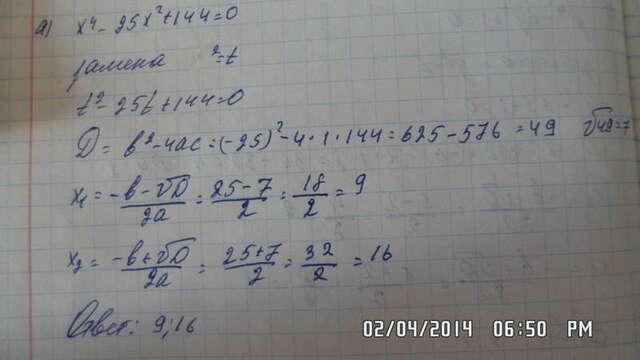 а) x⁴-25x²+144=0
замена ²=t
t²-25t+144=0
D=b²-4ac=(-25)²-4·1·144=625-576=49 √49=7
x₁=(-b-√D)/2a=(25-7)/2=18/2=9
x₂=(-b+√D)/2a=(25+7)/2=32/2=16
Ответ: 9;16
02/04/2014 06:50 PM